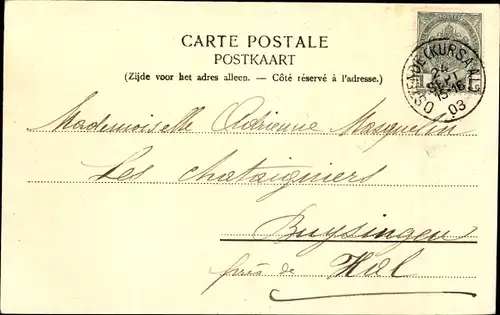 CARTE POSTALE
POSTKAART
(Zijde voor het adres alleen. — Côté réservé à l'adresse.)
OSTENDE (KURSAAL)
15-16
03
Mademoiselle Adrienne Masquelin
Les Chataigniers
Buysingen
près de Hal